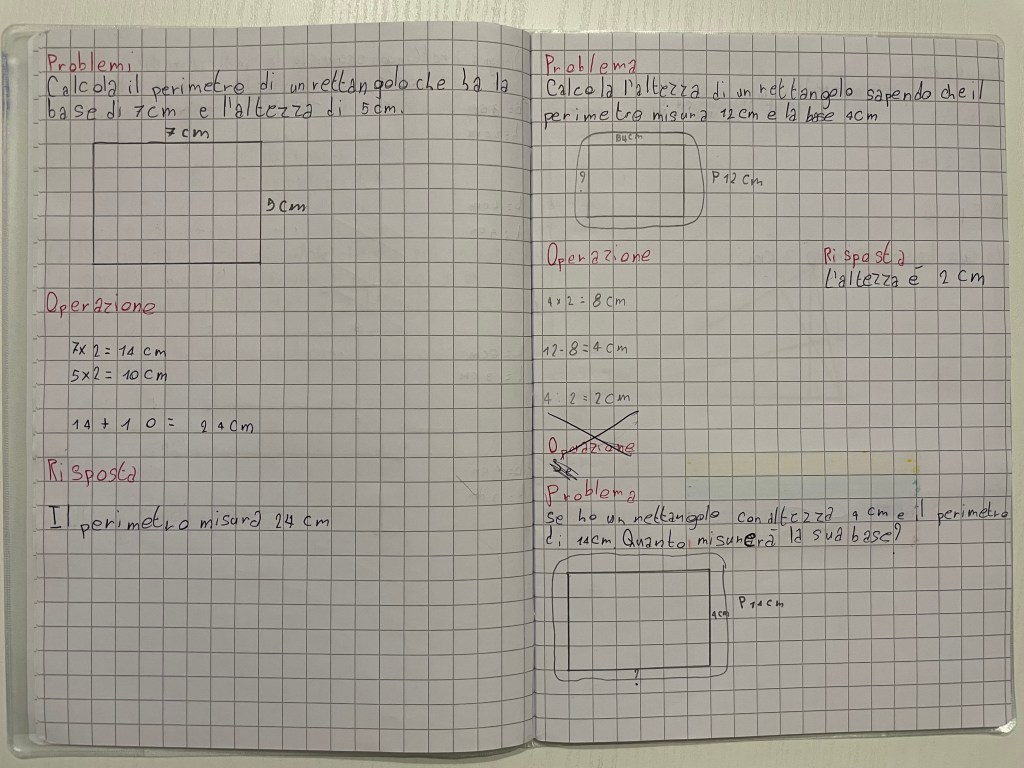 Problemi
Calcola il perimetro di un rettangolo che ha la
base di 7cm e l'altezza di 5cm.
7cm
5cm
Operazione
7x2=14 cm
5x2=10 cm
14+10= 24cm
Risposta
Il perimetro misura 24 cm
Problema
Calcola l'altezza di un rettangolo sapendo che il
perimetro misura 12cm e la base 4cm
B4cm
?
P12cm
Operazione
4x2=8cm
12-8=4cm
4:2=2cm
Risposta
l'altezza é 2cm
Operazione
Problema
se ho un rettangolo con altezza 4 cm e il perimetro
di 14cm Quanto misurerà la sua base?
4cm
P14cm
?